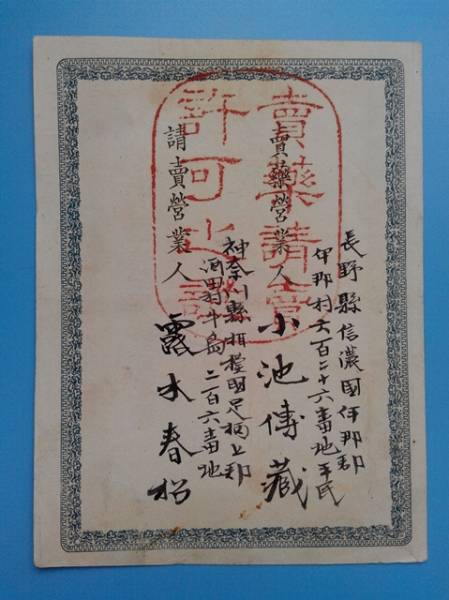 長野縣信濃國伊那郡
伊那村六百二十六番地平民
賣藥營業人 小池傳藏
神奈川縣相模國足柄上郡
酒田村牛島二百六番地
請賣營業人 露木春松
賣藥請賣
許可之證